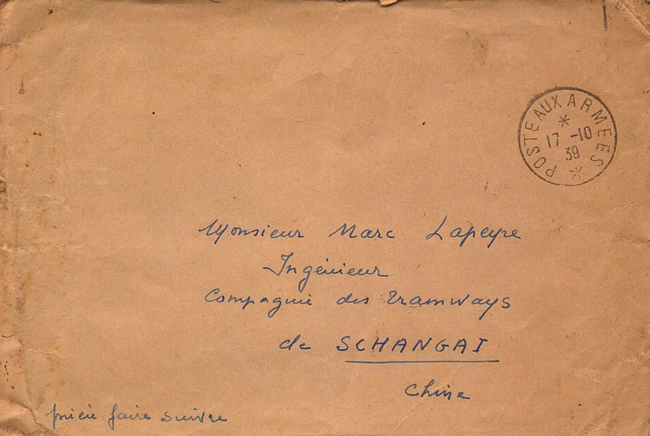 POSTE AUX ARMEES
17 -10
39
Monsieur Marc Lapeyre
Ingénieur
Compagnie des Tramways
de SCHANGAI
Chine
prière faire suivre